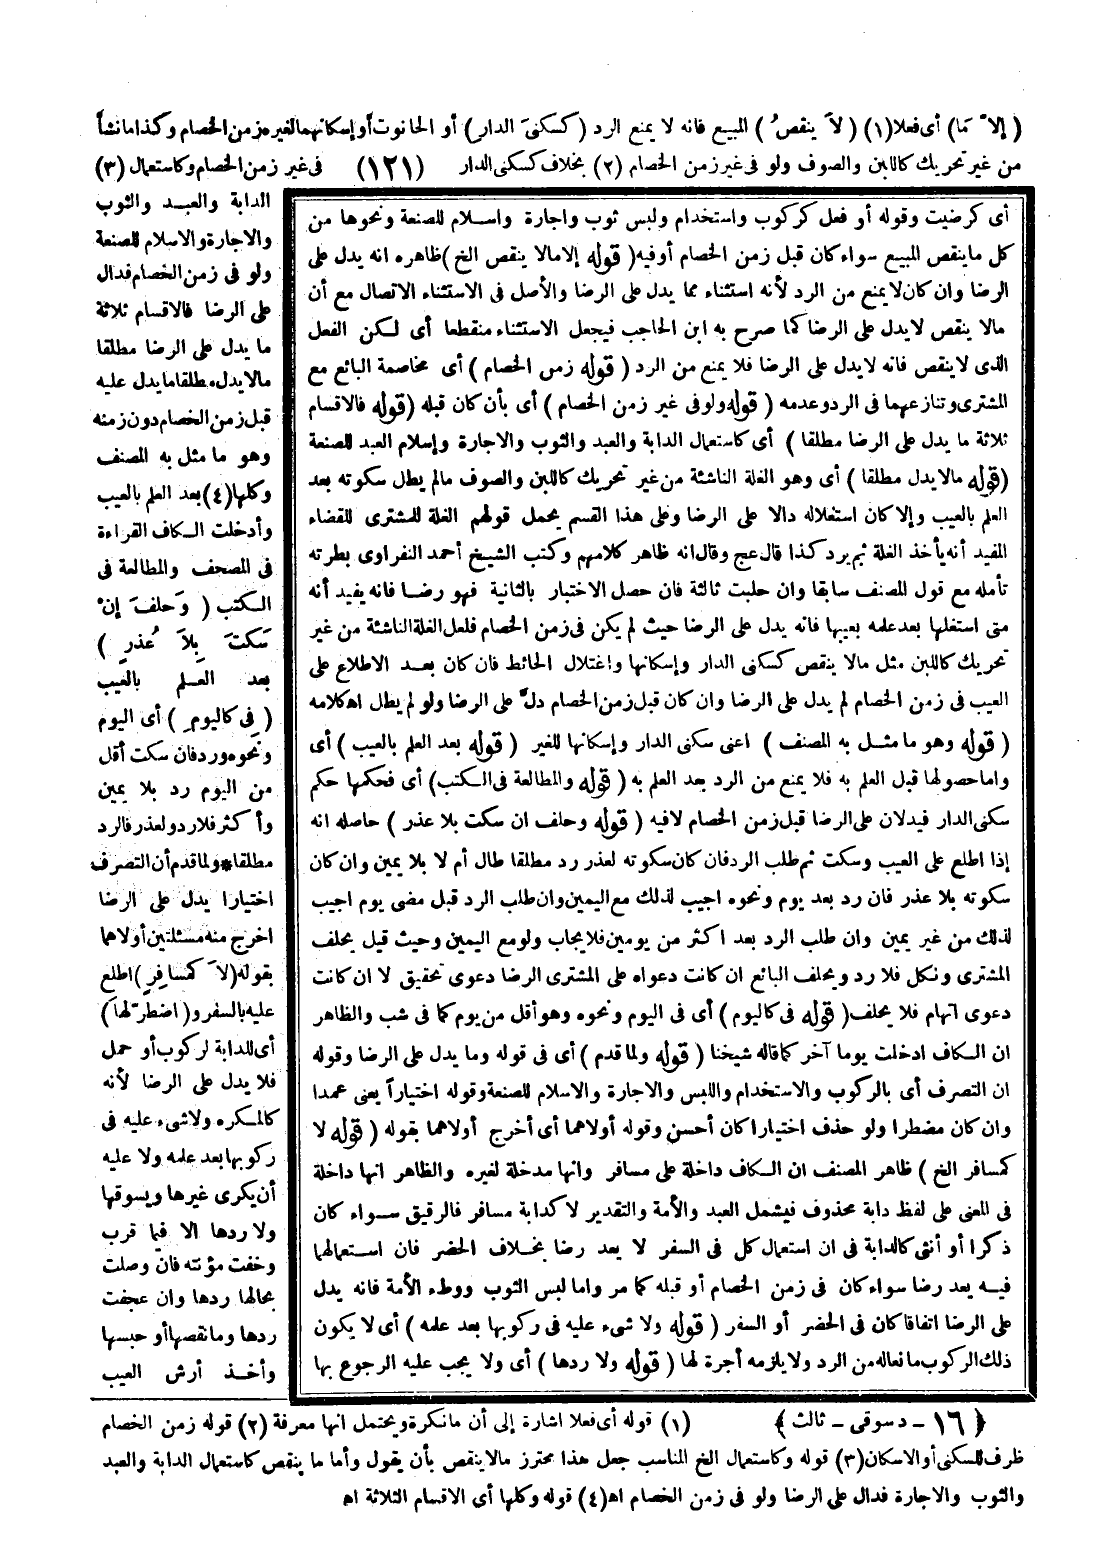 ( إلاَّ مَا ) أى فعلا (١) ( لاَ ينقصُ ) المبيع فانه لا يمنع الرد ( كسكنىَ الدار ) أو الحانوت أو إسكانهما لغيره زمن الخصام وكذا ما نشأ
من غير تحريك كاللبن والصوف ولو فى غير زمن الخصام (٢) بخلاف كسكنى الدار (١٢١) فى غير زمن الخصام وكاستعمال (٣)
الدابة والعبد والثوب
والاجارة والاسلام للصنعة
ولو فى زمن الخصام فدال
على الرضا فالاقسام ثلاثة
ما يدل على الرضا مطلقا
مالا يدل مطلقا ما يدل عليه
قبل زمن الخصام دون زمنه
وهو ما مثل به المصنف
وكلها (٤) بعد العلم بالعيب
وأدخلت الكاف القراءة
فى المصحف والمطالعة فى
الكتب ( وَحلفَ إنْ
سَكتَ بِلاَ عُذرٍ )
بعد العلم بالعيب
( فِى كاليومِ ) أى اليوم
ونحوه ورد فان سكت أقل
من اليوم رد بلا يمين
وأكثر فلا رد ولعذر فالرد
مطلقا * ولما قدم أن التصرف
اختيارا يدل على الرضا
اخرج منه مسئلتين أولاهما
بقوله ( لاَ كمسافرٍ ) اطلع
عليه بالسفر و ( اضطرَّ لها )
أى للدابة لركوب أو حمل
فلا يدل على الرضا لأنه
كالمكره ولا شىء عليه فى
ركوبها بعد علمه ولا عليه
أن يكرى غيرها ويسوقها
ولا ردها الا فيما قرب
وخفت مؤنته فان وصلت
بحالها ردها وان عجفت
ردها وما نقصها أو حبسها
وأخذ أرش العيب
أى كرضيت وقوله أو فعل كركوب واستخدام ولبس ثوب واجارة واسلام للصنعة ونحوها من
كل ما ينقص المبيع سواء كان قبل زمن الخصام أو فيه ( قوله إلا مالا ينقص الخ ) ظاهره انه يدل على
الرضا وان كان لا يمنع من الرد لأنه استثناء مما يدل على الرضا والأصل فى الاستثناء الاتصال مع أن
مالا ينقص لا يدل على الرضا كما صرح به ابن الحاجب فيجعل الاستثناء منقطعا أى لكن الفعل
الذى لا ينقص فانه لا يدل على الرضا فلا يمنع من الرد ( قوله زمن الخصام ) أى مخاصمة البائع مع
المشترى وتنازعهما فى الرد وعدمه ( قوله ولو فى غير زمن الخصام ) أى بأن كان قبله ( قوله فالاقسام
ثلاثة ما يدل على الرضا مطلقا ) أى كاستعمال الدابة والعبد والثوب والاجارة وإسلام العبد للصنعة
( قوله مالا يدل مطلقا ) أى وهو الغلة الناشئة من غير تحريك كاللبن والصوف مالم يطل سكوته بعد
العلم بالعيب وإلا كان استغلاله دالا على الرضا وعلى هذا القسم يحمل قولهم الغلة للمشترى للقضاء
المفيد أنه يأخذ الغلة ثم يرد كذا قال عج وقال انه ظاهر كلامهم وكتب الشيخ أحمد النفراوى بطرته
تأمله مع قول المصنف سابقا وان حلبت ثالثة فان حصل الاختبار بالثانية فهو رضا فانه يفيد أنه
متى استغلها بعد علمه بعيبها فانه يدل على الرضا حيث لم يكن فى زمن الخصام فلعل الغلة الناشئة من غير
تحريك كاللبن مثل مالا ينقص كسكنى الدار وإسكانها واغتلال الحائط فان كان بعد الاطلاع على
العيب فى زمن الخصام لم يدل على الرضا وان كان قبل زمن الخصام دلّ على الرضا ولو لم يطل اه كلامه
( قوله وهو ما مثل به المصنف ) اعنى سكنى الدار وإسكانها للغير ( قوله بعد العلم بالعيب ) أى
واما حصولها قبل العلم به فلا يمنع من الرد بعد العلم به ( قوله والمطالعة فى الكتب ) أى فحكمها حكم
سكنى الدار فيدلان على الرضا قبل زمن الخصام لا فيه ( قوله وحلف ان سكت بلا عذر ) حاصله انه
إذا اطلع على العيب وسكت ثم طلب الرد فان كان سكوته لعذر رد مطلقا طال أم لا بلا يمين وان كان
سكوته بلا عذر فان رد بعد يوم ونحوه اجيب لذلك مع اليمين وان طلب الرد قبل مضى يوم اجيب
لذلك من غير يمين وان طلب الرد بعد اكثر من يومين فلا يجاب ولو مع اليمين وحيث قيل يحلف
المشترى ونكل فلا رد ويحلف البائع ان كانت دعواه على المشترى الرضا دعوى تحقيق لا ان كانت
دعوى اتهام فلا يحلف ( قوله فى كاليوم ) أى فى اليوم ونحوه وهو أقل من يوم كما فى شب والظاهر
ان الكاف ادخلت يوما آخر كما قاله شيخنا ( قوله ولما قدم ) أى فى قوله وما يدل على الرضا وقوله
ان التصرف أى بالركوب والاستخدام واللبس والاجارة والاسلام للصنعة وقوله اختياراً يعنى عمدا
وان كان مضطرا ولو حذف اختيارا كان أحسن وقوله أولاهما أى أخرج أولاهما بقوله ( قوله لا
كمسافر الخ ) ظاهر المصنف ان الكاف داخلة على مسافر وانها مدخلة لغيره والظاهر انها داخلة
فى المعنى على لفظ دابة محذوف فيشمل العبد والأمة والتقدير لا كدابة مسافر فالرقيق سواء كان
ذكرا أو أنثى كالدابة فى ان استعمال كل فى السفر لا يعد رضا بخلاف الحضر فان استعمالها
فيه يعد رضا سواء كان فى زمن الخصام أو قبله كما مر واما لبس الثوب ووطء الأمة فانه يدل
على الرضا اتفاقا كان فى الحضر أو السفر ( قوله ولا شىء عليه فى ركوبها بعد علمه ) أى لا يكون
ذلك الركوب مانعاله من الرد ولا يلزمه أجرة لها ( قوله ولا ردها ) أى ولا يجب عليه الرجوع بها
{ ١٦ ـ دسوقى ـ ثالث } (١) قوله أى فعلا اشارة إلى أن ما نكرة ويحتمل انها معرفة (٢) قوله زمن الخصام
ظرف للسكنى أو الاسكان (٣) قوله وكاستعمال الخ المناسب جعل هذا محترز مالا ينقص بأن يقول وأما ما ينقص كاستعمال الدابة والعبد
والثوب والاجارة فدال على الرضا ولو فى زمن الخصام اه (٤) قوله وكلها أى الاقسام الثلاثة اه